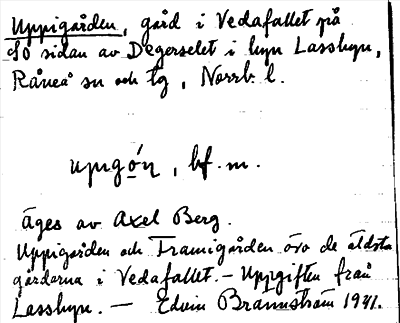 Uppigården, gård i Vedafallet på
SO sidan av Degerselet i byn Lassbyn,
Råneå sn och tg, Norrb. l.
upigǫ́ṇ, bf. m.
äges av Axel Berg.
Uppigården och Framigården äro de äldsta
gårdarna i Vedafallet. – Uppgiften från
Lassbyn. — Edvin Brännström 1941.